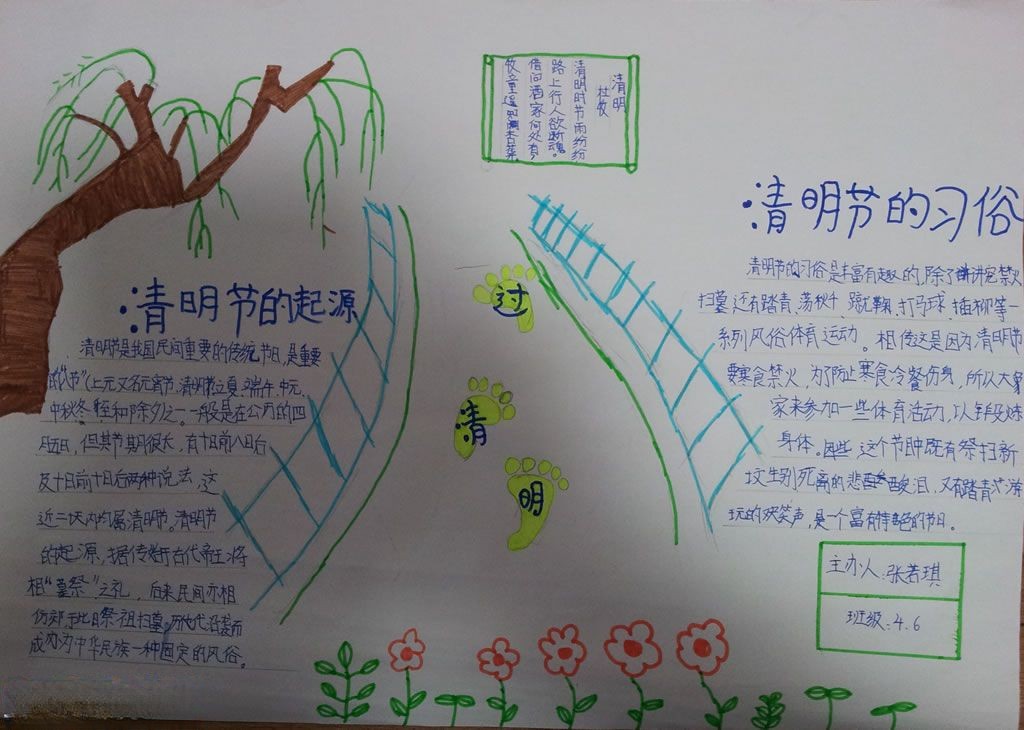 清明
杜牧
清明时节雨纷纷
路上行人欲断魂。
借问酒家何处有？
牧童遥
过
清
明
清明节的起源
清明节是我国民间重要的传统节日，是重要
的“八节”（上元又名元宵节、清明节、立夏、端午、中元、
中秋、冬至和除夕）之一。一般是在公历的四
月五日，但其节期很长，有十日前八日后
及十日前十日后两种说法，这
近二十天内均属清明节。清明节
的起源，据传始于古代帝王将
相“墓祭”之礼，后来民间亦相
仿效，于此日祭祖扫墓，历代沿袭而
成为中华民族一种固定的风俗。
清明节的习俗
清明节的习俗是丰富有趣的，除了讲究禁火
扫墓，还有踏青、荡秋千、蹴鞠、打马球、插柳等一
系列风俗体育运动。相传这是因为清明节
要寒食禁火，为了防止寒食冷餐伤身，所以大
家来参加一些体育活动，以锻炼
身体。因此，这个节日中既有祭扫新
坟生别死离的悲酸泪，又有踏青游
玩的欢笑声，是一个富有特色的节日。
主办人：张若琪
班级：4.6